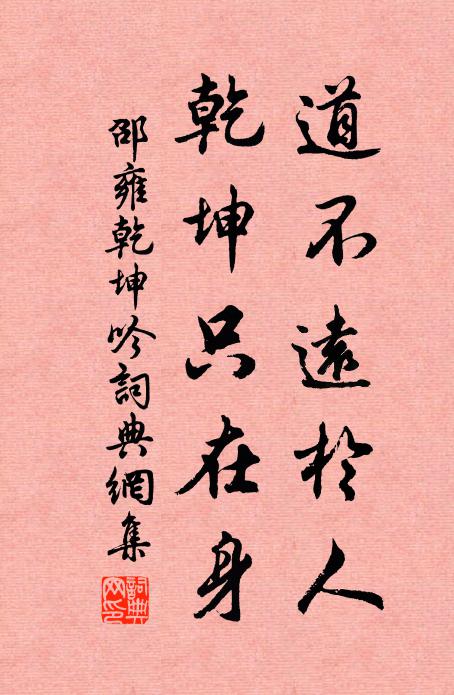 道不遠於人
乾坤只在身
邵雍乾坤吟詞典網集
詞典網印